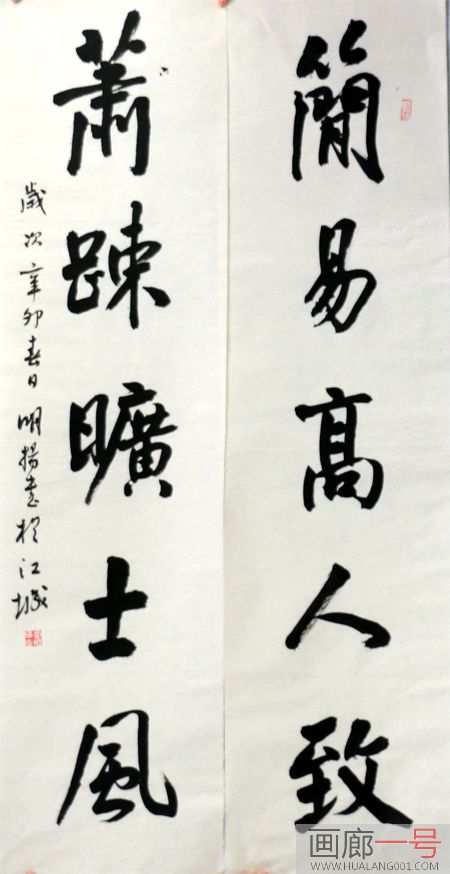 簡易高人致
蕭踈曠士風
歲次辛卯春日明揚書於江城
画廊一号
WWW.HUALANG001.COM